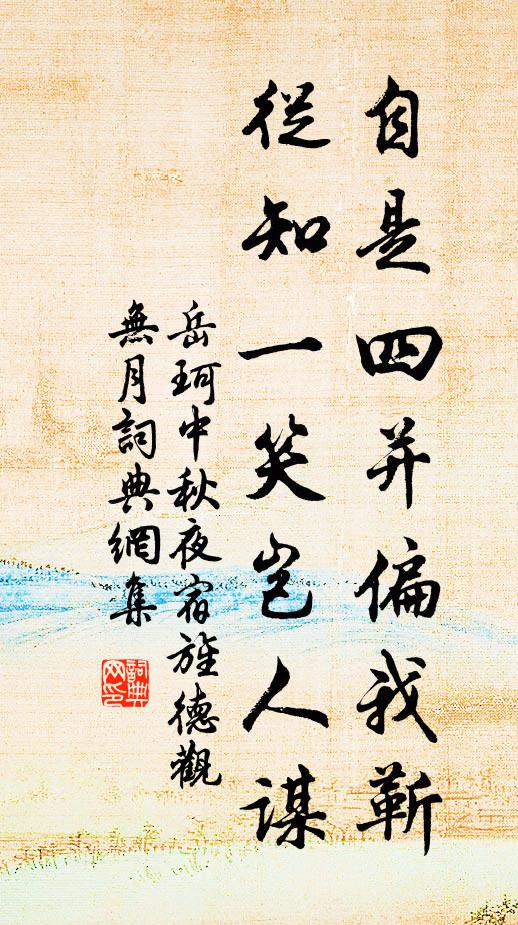 自是四并偏我靳
從知一笑豈人謀
岳珂中秋夜宿旌德觀
無月詞典網集
詞典網印